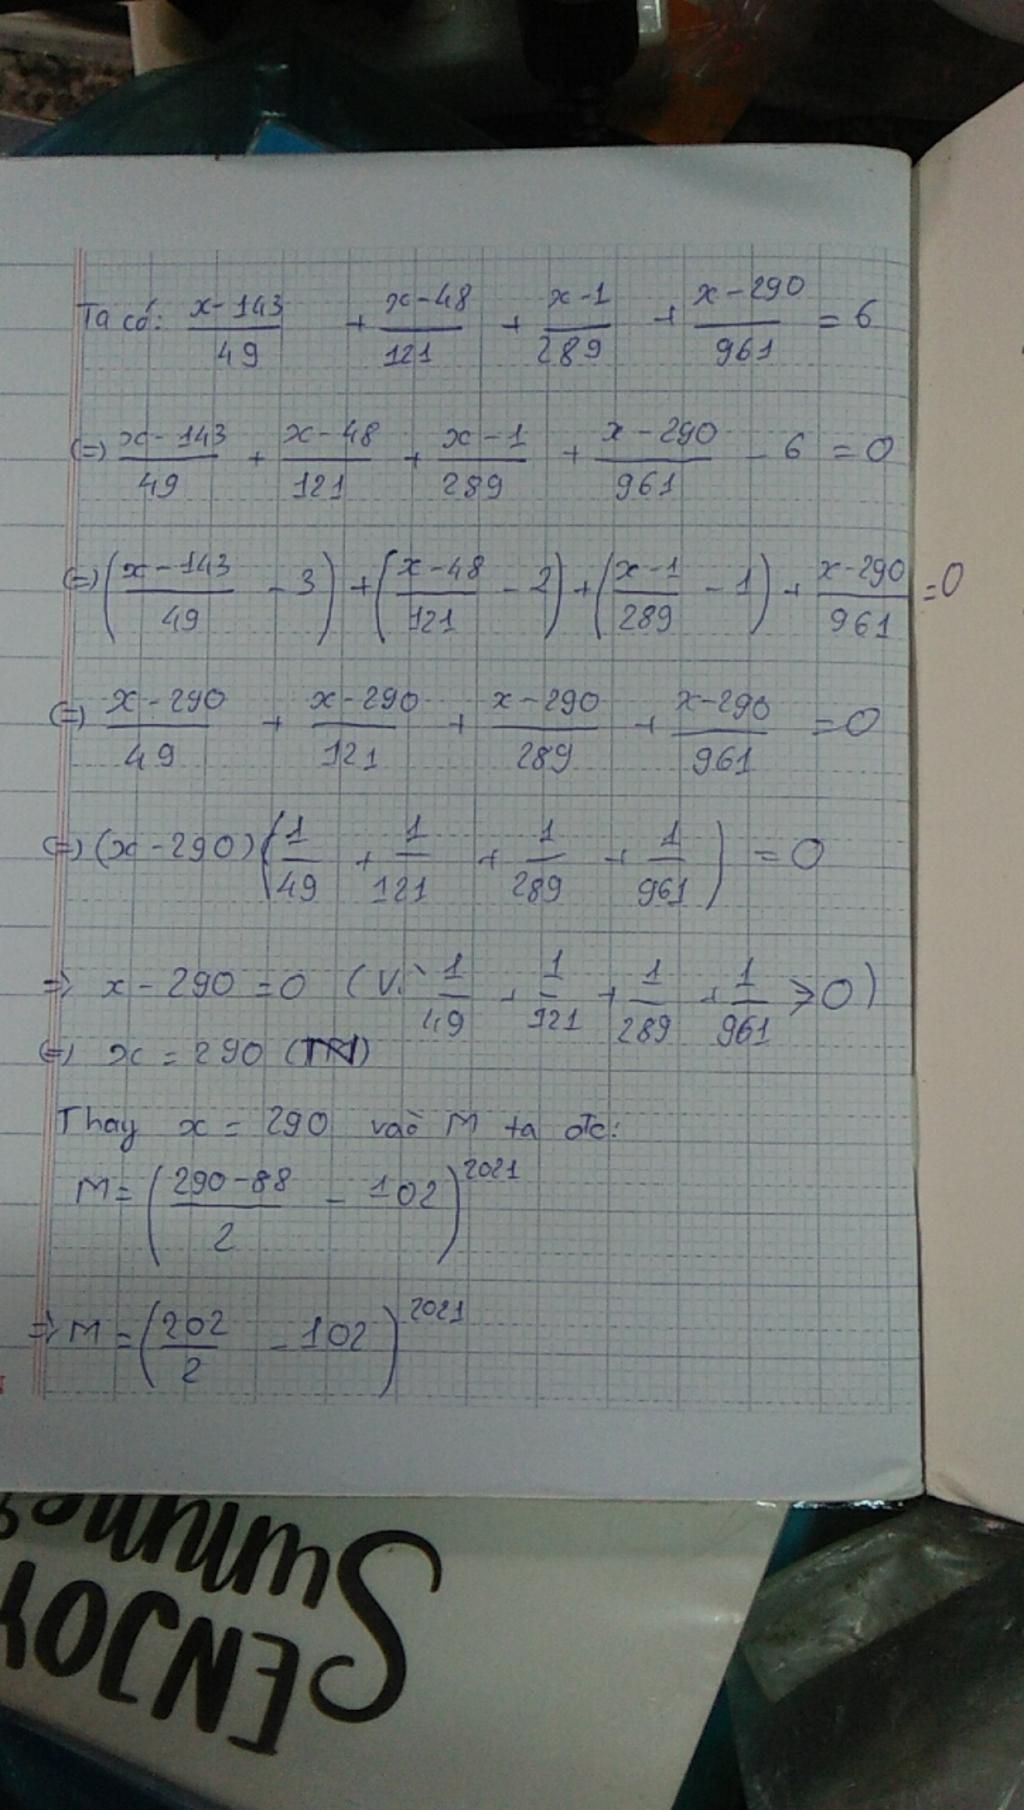 Ta có: x-143/49 + x-48/121 + x-1/289 + x-290/961 = 6
(=) x-143/49 + x-48/121 + x-1/289 + x-290/961 - 6 = 0
(=) (x-143/49 - 3) + (x-48/121 - 2) + (x-1/289 - 1) + x-290/961 = 0
(=) x-290/49 + x-290/121 + x-290/289 + x-290/961 = 0
(=) (x-290)(1/49 + 1/121 + 1/289 + 1/961) = 0
=> x-290 = 0 (Vì 1/49 + 1/121 + 1/289 + 1/961 > 0)
(=) x = 290
Thay x = 290 vào M ta đc:
M = (290-88/2 - 102)^2021
=> M = (202/2 - 102)^2021
Summer
ENJOY